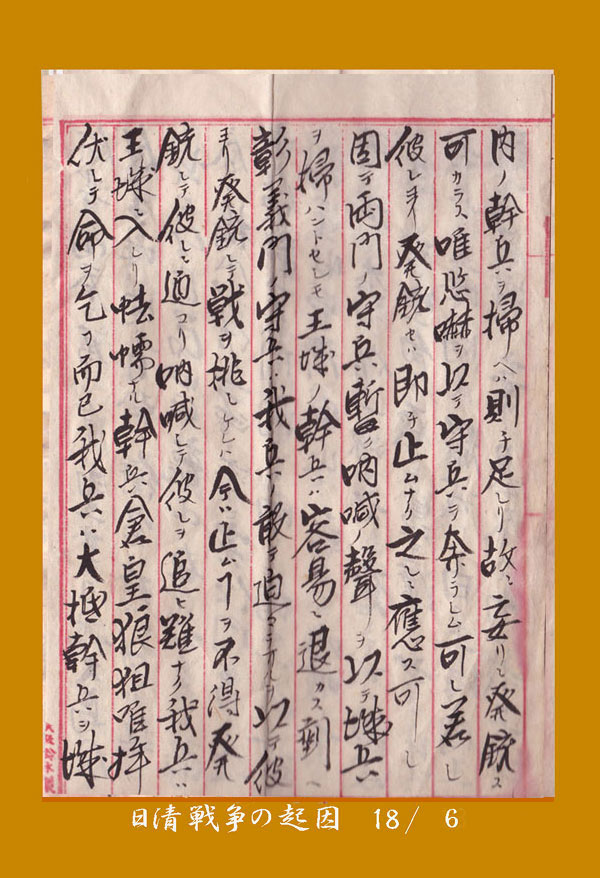 内ノ幹兵ヲ掃ヘハ則チ足レリ故ニ妄リニ発銃ス
可カラス唯恐嚇ヲ以テ守兵ヲ奔ラシム可シ若シ
彼レヨリ発銃セハ即チ止ムナク之レニ應ス可シ
因テ両門ノ守兵暫ク吶喊ノ聲ヲ以テ城兵
ヲ掃ハントセシモ王城ノ幹兵ハ容易ニ退カス剰ヘ
彰義門ノ守兵ハ我兵ノ敢テ迫ラサルヲ以テ彼
ヨリ発銃シテ戦ヲ挑ミケレハ今ハ止ムヿヲ不得発
銃シテ彼レニ迫マリ吶喊シテ彼レヲ追ヒ難ナク我兵ハ
王城ニ入レリ怯懦ナル幹兵倉皇狼狙唯拝
伏シテ命ヲ乞フ而已我兵ハ大抵幹兵ヲ城
日清戦争の起因 18/ 6